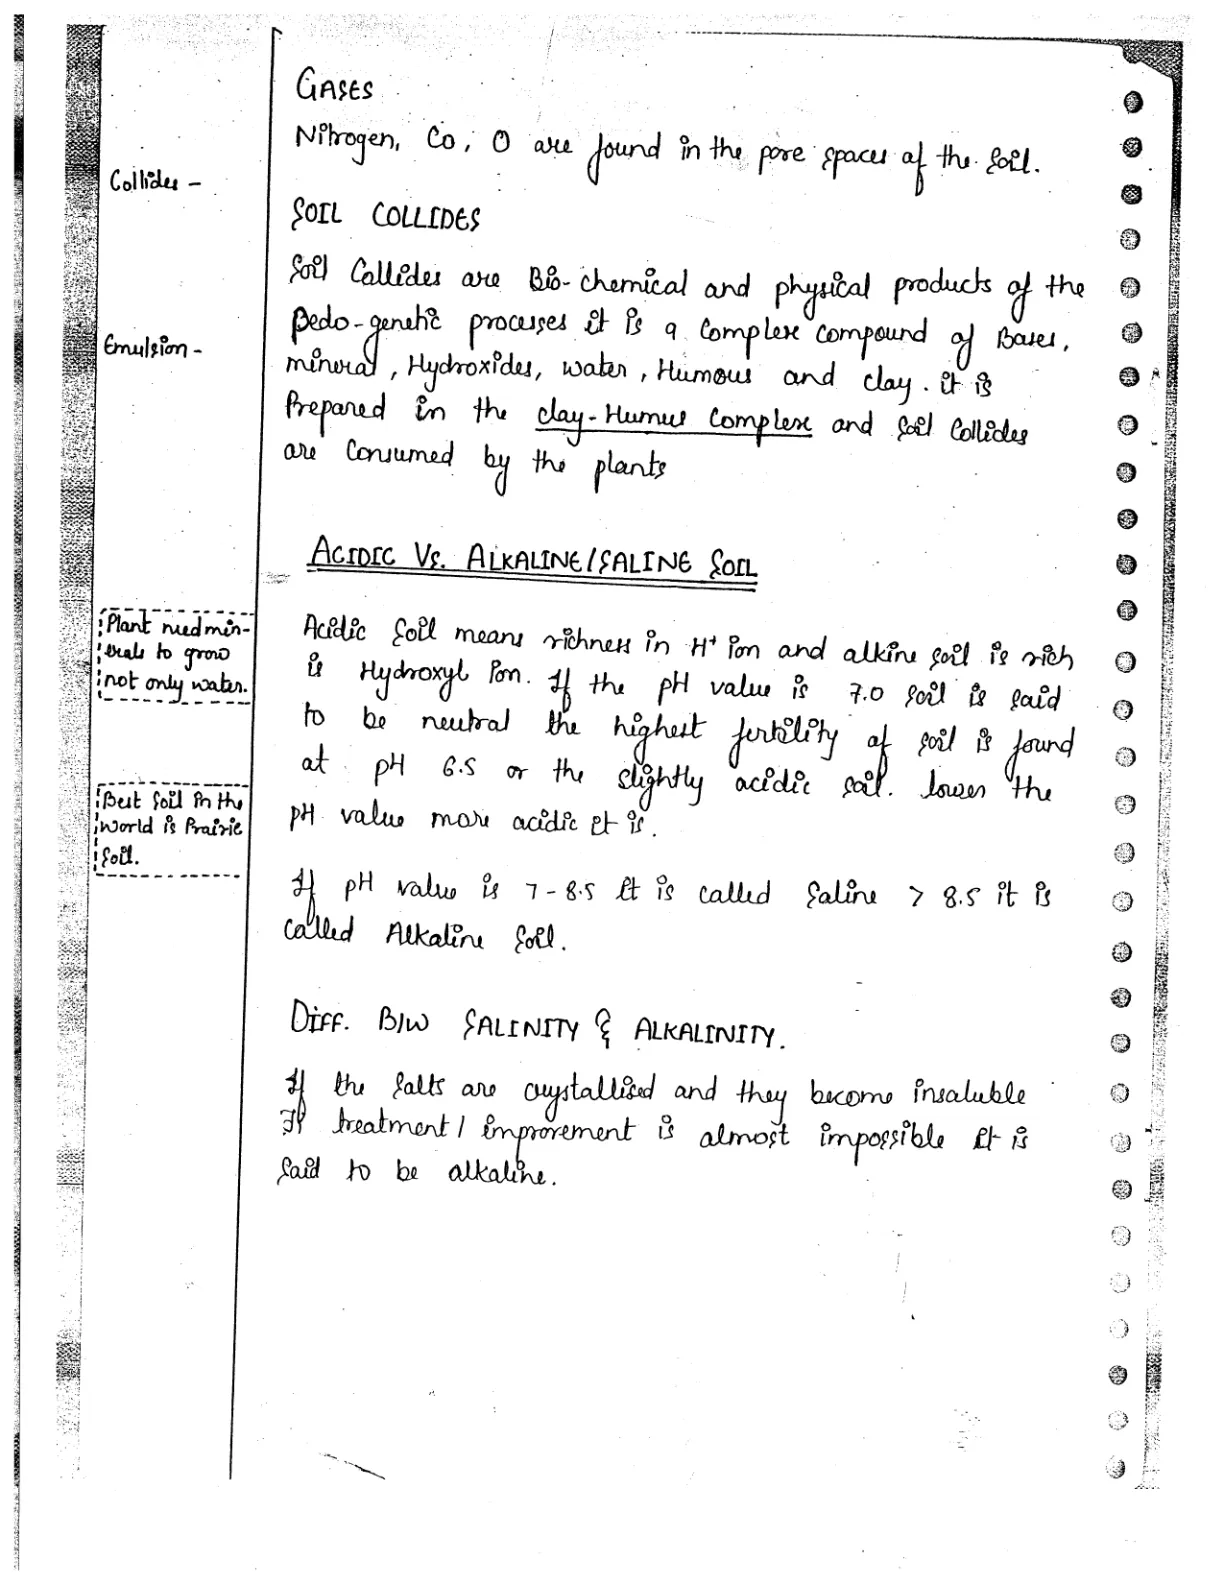 GASES
Nitrogen, Co, O are found in the pore spaces of the Soil.
Collides -
SOIL COLLIDES
Soil Collides are Bio-chemical and physical products of the
Pedo-genetic processes it is a Complex Compound of Bases,
Emulsion -
mineral, Hydroxides, water, Humous and clay. it is
Prepared in the clay-Humus Complex and Soil Collides
are Consumed by the plants
ACIDIC Vs. ALKALINE/SALINE SOIL
Plant need min-
erals to grow
not only water.
Acidic Soil means richness in H+ ion and alkine soil is rich
is Hydroxyl ion. If the pH value is 7.0 soil is said
to be neutral the highest fertility of soil is found
at pH 6.5 or the slightly acidic soil. lower the
pH value more acidic it is.
Best Soil in the
world is Prairie
Soil.
If pH value is 7-8.5 it is called Saline > 8.5 it is
called Alkaline Soil.
DIFF. B/W SALINITY & ALKALINITY.
If the Salts are crystallised and they become insaluble
If treatment/improvement is almost impossible it is
Said to be alkaline.